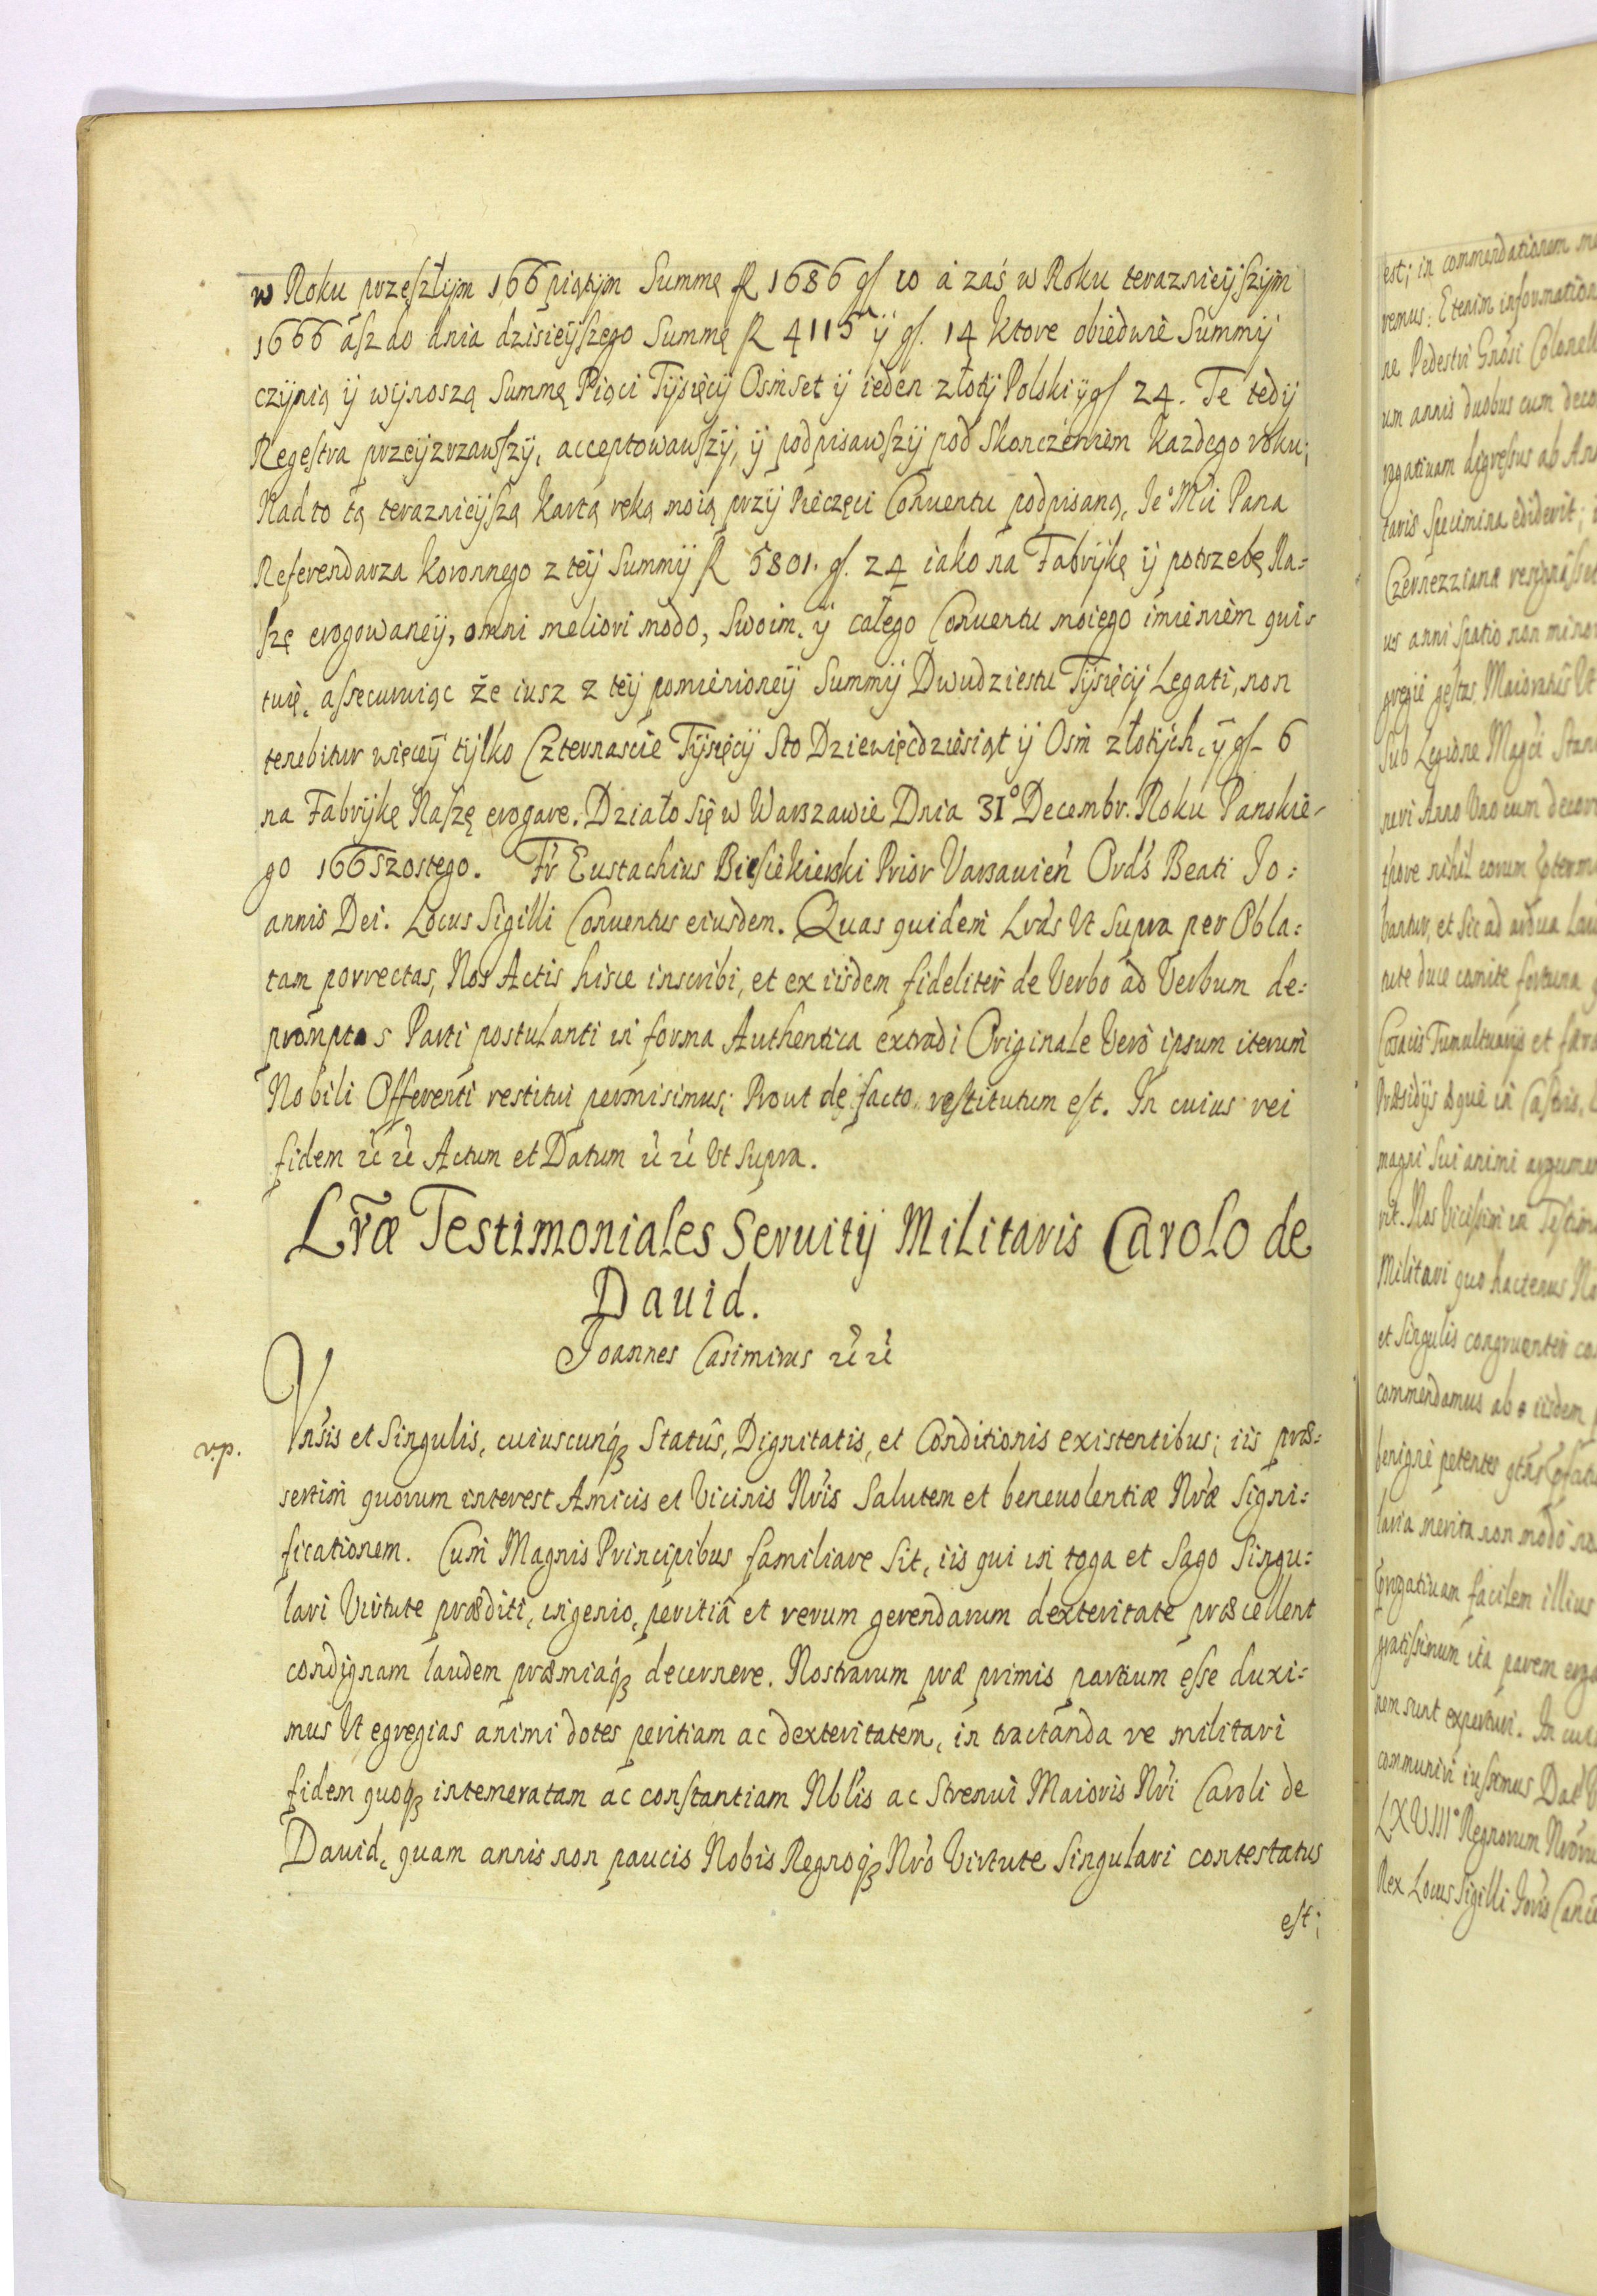 w Roku przeszłÿm 166 piątÿm Summę fl 1686 gſ 10 á zaś w Roku teraznieÿſzÿm
1666 áſz do dnia dzisieÿſzego Summę fl 4115 ÿ gſ. 14 Ktore obiedwie Summÿ
czÿnią ÿ wÿnoszą Summę Piąci Tÿsięcÿ Osmset ÿ ieden złotÿ Polski ÿ gſ 24. Te tedÿ
Regestra przeÿzrzawſzÿ, acceptowawſzÿ, ÿ podpisawſzÿ pod Skonczeniem Kazdego roku;
Nad to tą teraznieÿſzą Kartą ręką moią przÿ Pieczęci Conuentu podpisaną, Je° Mci Pana
Referendarza Koronnego z teÿ Summÿ fl 5801. gſ. 24 iako na Fabrÿkę ÿ potrzebę Na=
ſzę erogowaneÿ, omni meliori modo, Swoim, ÿ całego Conuentu moiego imieniem qui-
tuię, aſsecuruiąc że iusz z teÿ pomienioneÿ Summÿ Dwudziestu Tÿsięcÿ Legati, non
tenebitur więceÿ tÿlko Czternaście Tÿsięcÿ Sto Dziewięcdziesiąt ÿ Osm złotÿch, ÿ gſ 6
na Fabrÿkę Naſzę erogare. Działo się w Warszawie Dnia 31° Decembr. Roku Panskie-
go 166 szostego. Fr Eustachius Biesiekierski Prior Varsauien Ords Beati Jo:
annis Dei. Locus Sigilli Conuentus eiusdem. Quas quidem Lras Vt Supra per Obla:
tam porrectas, Nos Actis hisce inscribi, et ex iisdem fideliter de Verbo ad Verbum de:
promptas Parti postulanti in forma Authentica extradi Originale Vero ipsum iterum
Nobili Offerenti restitui permisimus; Prout de facto restitutum est. In cuius rei
fidem etc etc Actum et Datum etc etc Vt Supra.
Lræ Testimoniales Seruitÿ Militaris Carolo de
Dauid.
Joannes Casimirus etc etc
v.p.
Vnsis et Singulis, cuiuscunqꝫ Statûs, Dignitatis, et Conditionis existentibus; iis præ:
sertim quorum interest Amicis et Vicinis Nris Salutem et beneuolentiæ Nræ Signi:
ficationem. Cum Magnis Principibus familiare Sit, iis qui in toga et Sago Singu:
lari Virtute præditi, ingenio, peritiâ et rerum gerendarum dexteritate præcellent
condignam laudem præmiaqꝫ decernere. Nostrarum præ primis partium eſse duxi:
mus Vt egregias animi dotes peritiam ac dexteritatem, in tractanda re militari
fidem quoqꝫ intemeratam ac constantiam Nblis ac Strenui Maioris Nri Caroli de
Dauid, quam annis non paucis Nobis Regnoqꝫ Nro Virtute Singulari contestatus
est;
est; in commendationem
remus: Etenim information
ne Pedestri Gnosi Colonell
um annis duobus cum deco
rogatiuam digreſsus ab
taris Specimina ediderit;
us anni Spatio non minor
gregie gestas Maioratus Vt
Sub Legione Magci
neri Anno Vno cum decor
bantur, et Sic ad ardua
nte duce comite fortuna
Cosacis Tumultuarÿs et
Præsidÿs æque in Castris,
magni Sui animi argumen
rit. Nos Vicissim in Testim
Militari quo hactenus No
et Singulis congruenter co
commendamus ab iisdem
benigne petentes
laria merita non modo no
rogatiuam facilem illius
gratiſsimum ita parem erga
nem sunt experturi. In cuius
communiri iuſsimus Dat
LXVIII° Regnorum Nroru
Rex Locus Sigilli